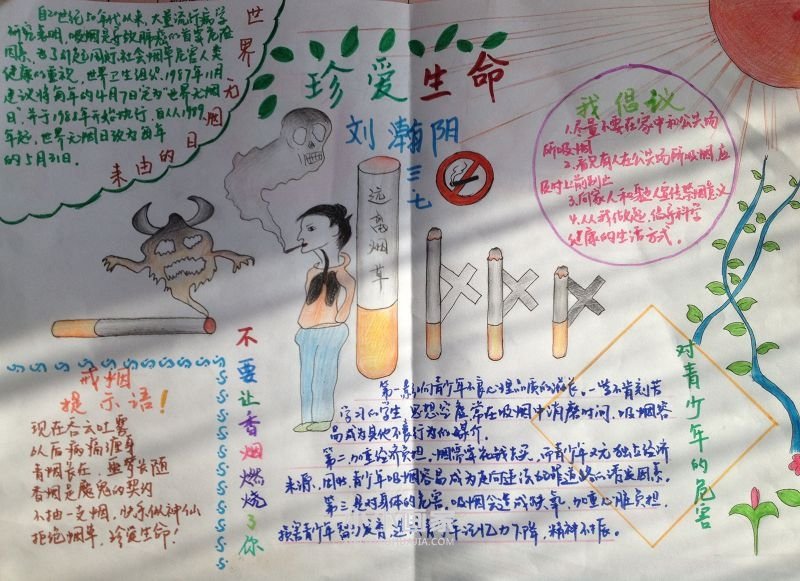 世界无烟日的由来
自20世纪50年代以来,大量流行病学
研究表明,吸烟是导致肺癌的首要危险
因素。为了引起国际社会烟草危害人类
健康的重视,世界卫生组织1987年11月
建议将每年的4月7日定为“世界无烟
日”,并于1988年开始执行,自从1989
年起,世界无烟日改为每年
的5月31日。
珍爱生命
刘瀚阳
三七
远离烟草
我倡议
1.尽量不要在家中和公共场
所吸烟
2.看见有人在公共场所吸烟,应
及时上前制止
3.向家人和身边人宣传禁烟意义
4.从我做起,倡导科学
健康的生活方式。
戒烟
提示语!
现在吞云吐雾
以后病痛缠身
青烟长在,噩梦长随
香烟是魔鬼的契约
不抽一支烟,快乐似神仙
拒绝烟草,珍爱生命!
不要让香烟燃烧了你
对青少年的危害
第一影响青少年不良心理品质的滋长。一些不肯刻苦
学习的学生,思想空虚常在吸烟中消磨时间,吸烟容
易成为其他不良行为的媒介。
第二加重经济负担,烟需要花钱去买,而青少年又无独立经济
来源,因此青少年吸烟容易成为走向违法的罪道路的诱发因素。
第三是对身体的危害。吸烟会造成缺氧,加重心脏负担,
损害青少年智力发育,
记忆力下降,精神不振。